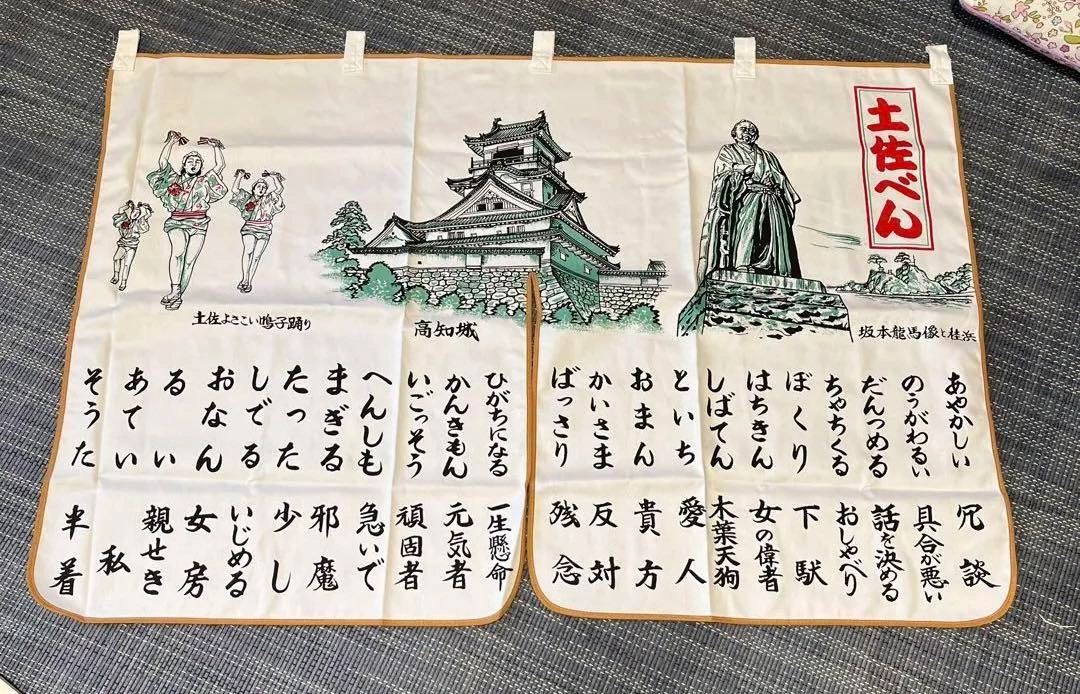 土佐べん
坂本龍馬像と桂浜
高知城
土佐よさこい鳴子踊り
あやかしい 冗談
のうがわるい 具合が悪い
だんつめる 話を決める
ちゃちくる おしゃべり
ぼくり 下駄
はちきん 女の偉者
しばてん 木葉天狗
といち 愛人
おまん 貴方
かいさま 反対
ばっさり 残念
ひがちになる 一生懸命
かんきもん 元気者
いごっそう 頑固者
へんしも 急いで
まぎる 邪魔
たった 少し
しでる いじめる
おなん 女房
るい 親せき
あてい 私
そうた 半着